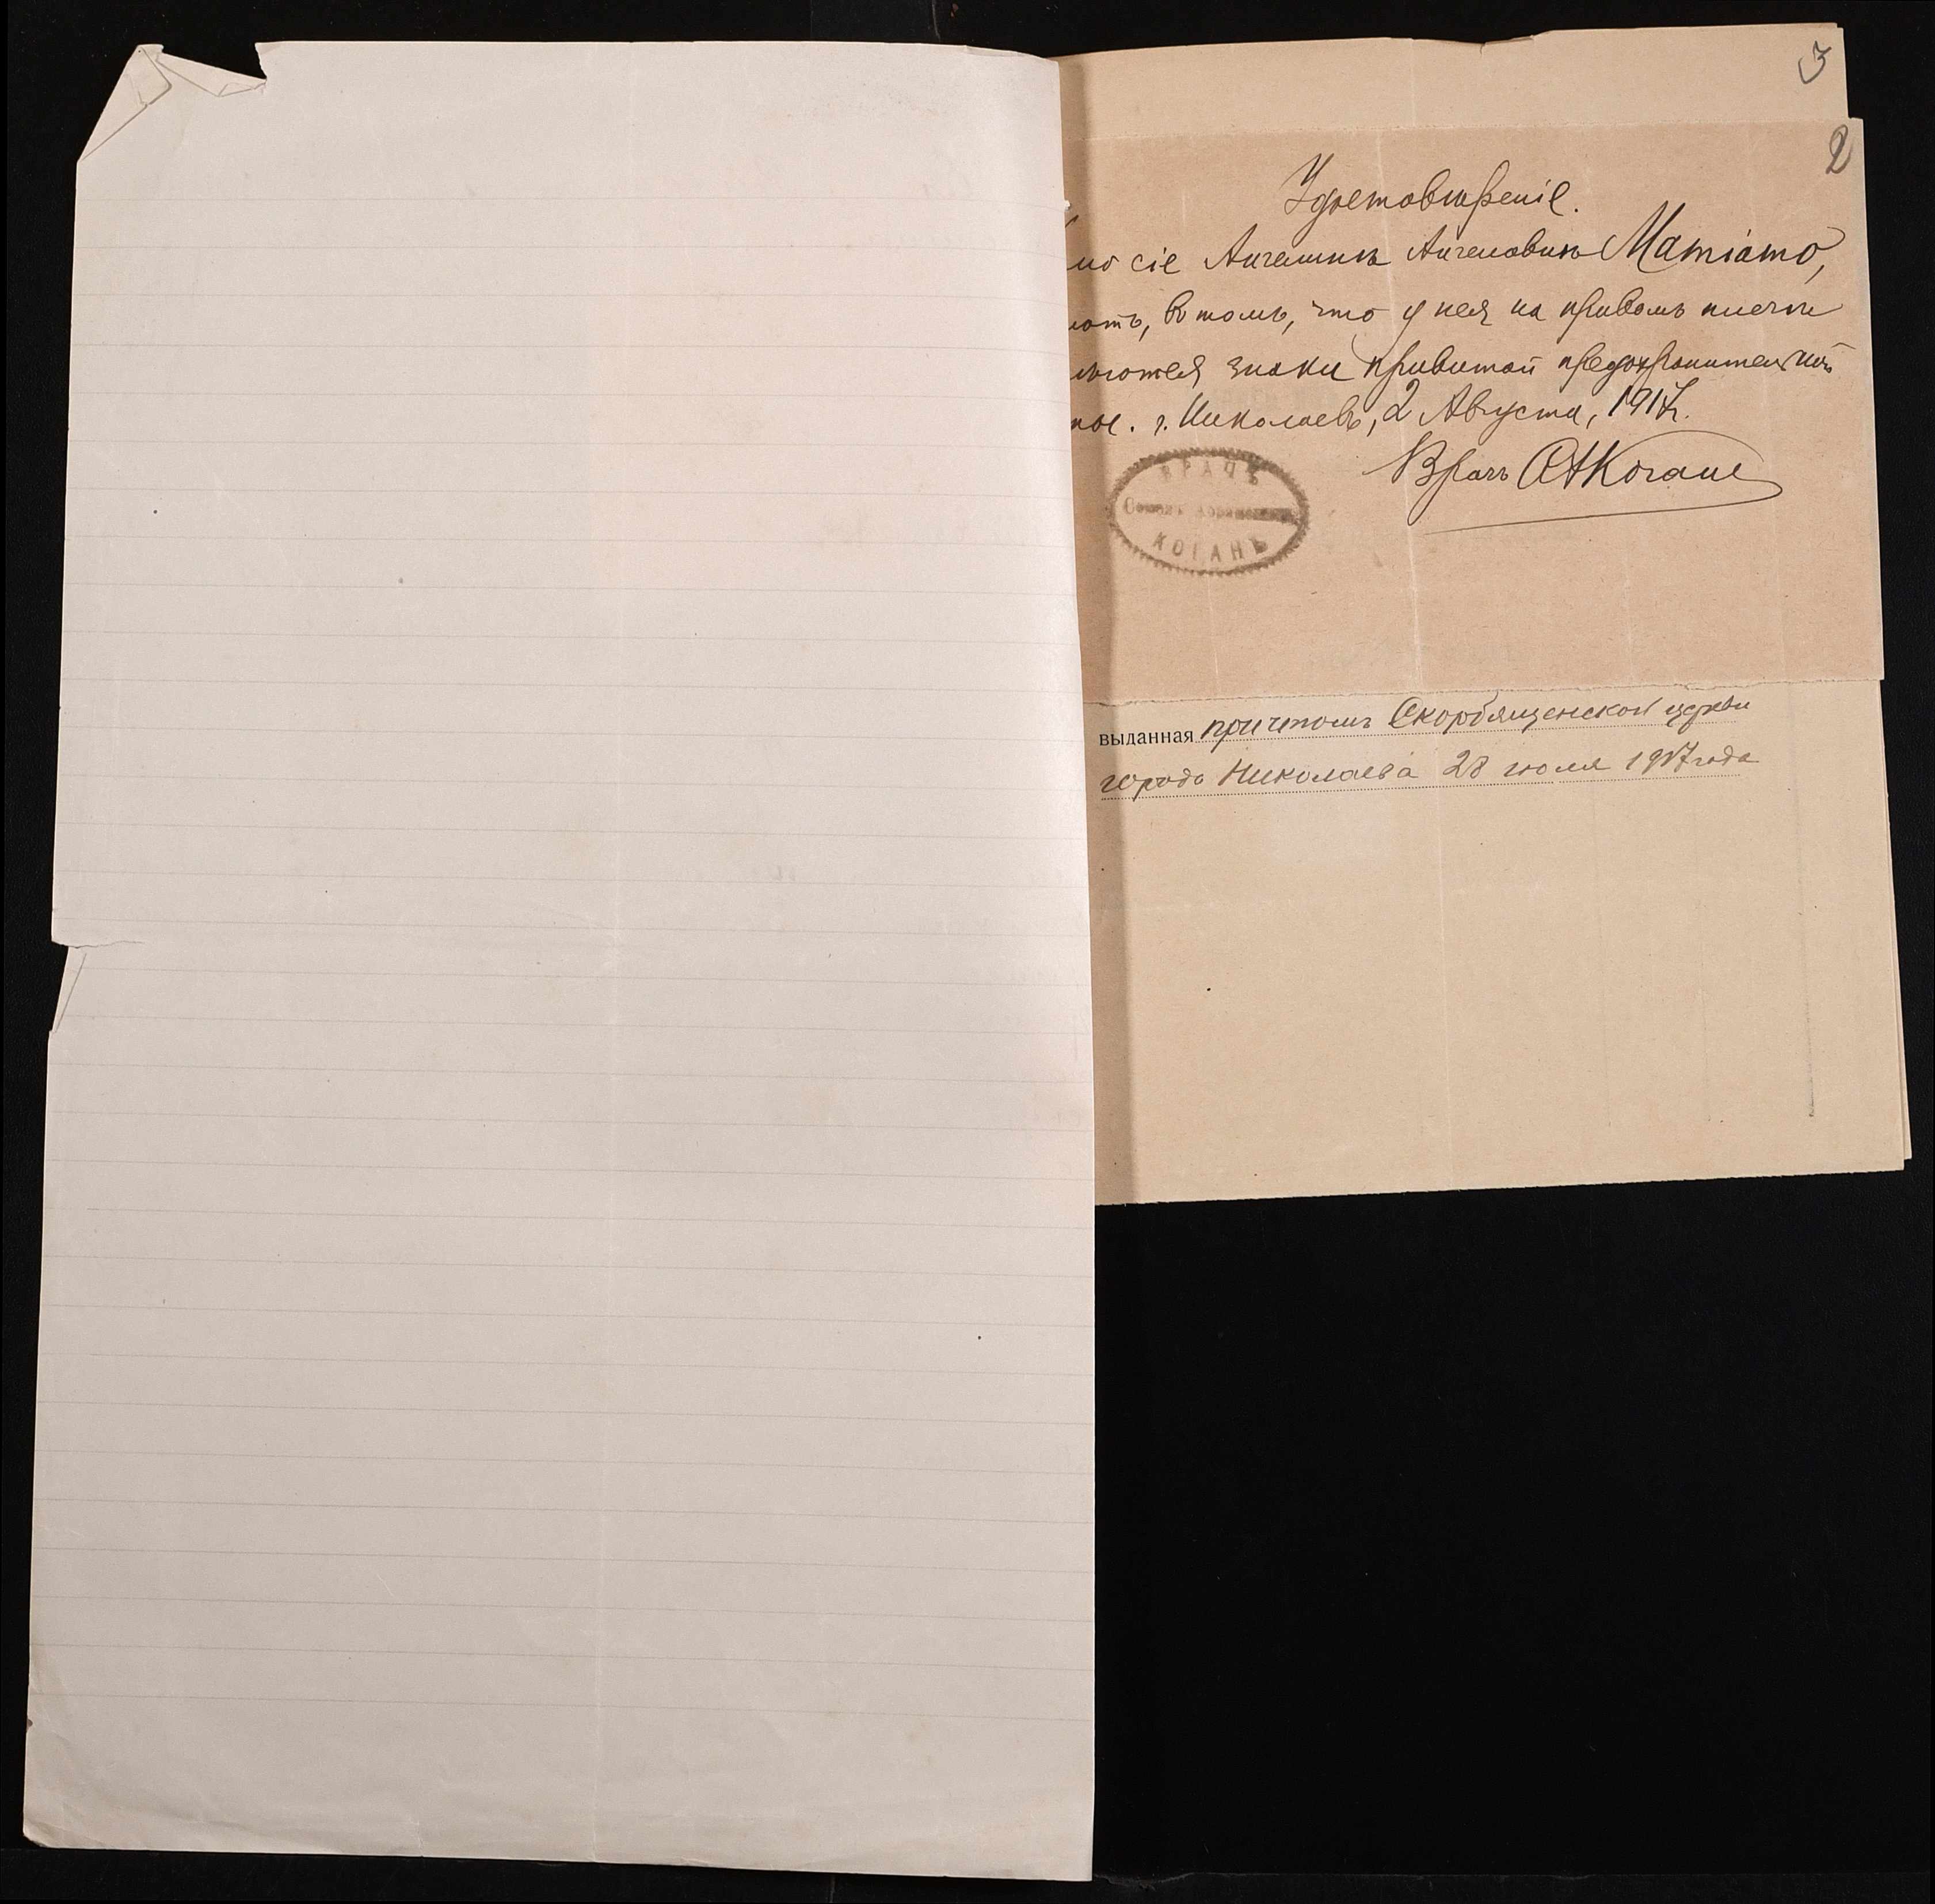 3
2
Удостовѣреніе.
но сіе Ангелинѣ Ангеловнѣ Матіато,
ютъ, въ томъ, что у нея на правомъ плечѣ
ѣются знаки привитой предохранительной
пое. г. Николаевъ, 2 Августа, 1917г.
Врачъ САКоганъ
ВРАЧЪ
КОГАНЪ
выданная причтомъ Скорбященской церкви
города Николаева 28 июля 1917 года